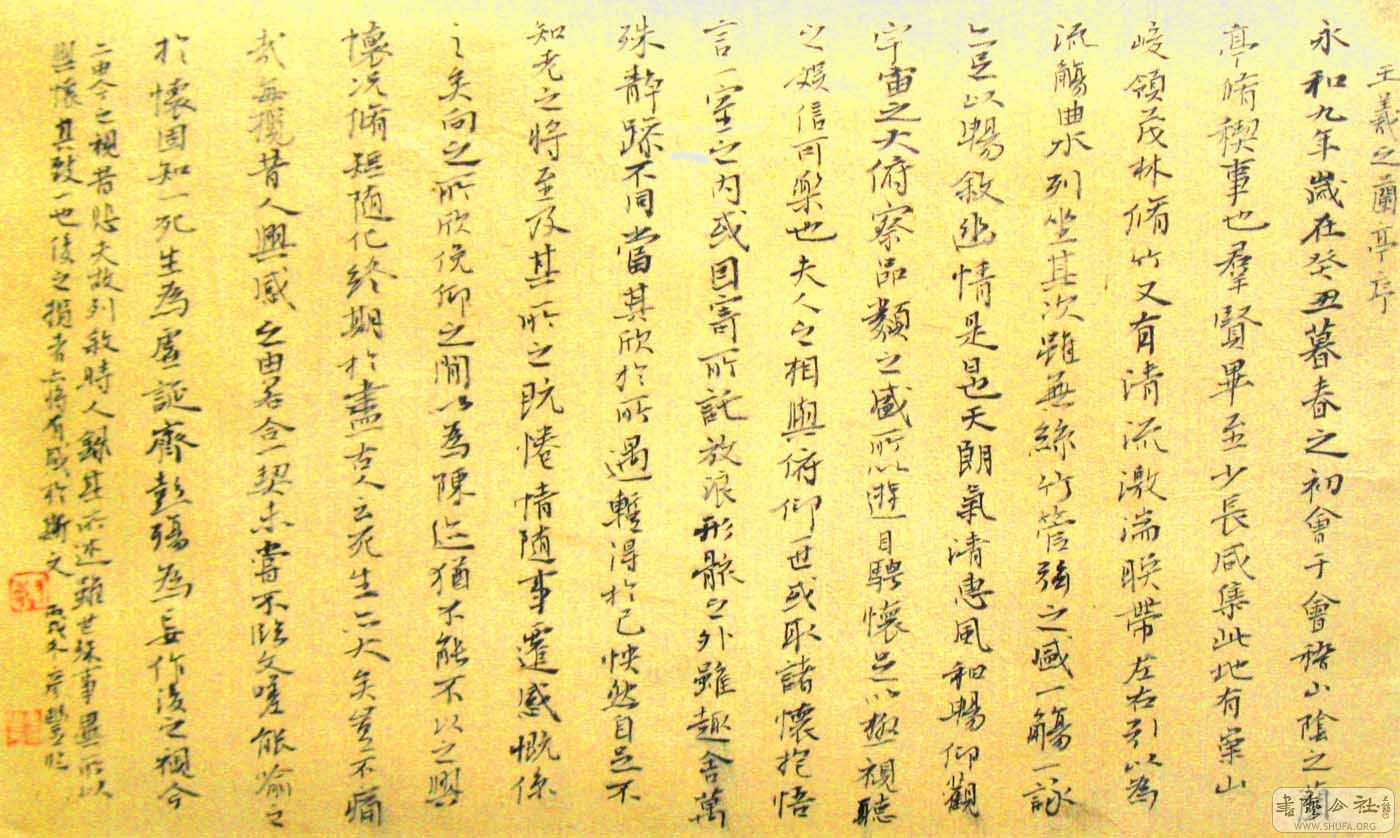 王羲之蘭亭序
永和九年歲在癸丑暮春之初會于會稽山陰之蘭
亭脩稧事也羣賢畢至少長咸集此地有崇山
峻領茂林脩竹又有清流激湍暎帶左右引以為
流觴曲水列坐其次雖無絲竹管弦之盛一觴一詠
亦足以暢敘幽情是日也天朗氣清惠風和暢仰觀
宇宙之大俯察品類之盛所以遊目騁懷足以極視聽
之娛信可樂也夫人之相與俯仰一世或取諸懷抱悟
言一室之內或因寄所託放浪形骸之外雖趣舍萬
殊靜躁不同當其欣於所遇暫得於己怏然自足不
知老之將至及其所之既惓情隨事遷感慨係
之矣向之所欣俛仰之間以為陳迹猶不能不以之興
懷況脩短隨化終期於盡古人云死生亦大矣豈不痛
哉每攬昔人興感之由若合一契未嘗不臨文嗟能喻之
於懷固知一死生為虛誕齊彭殤為妄作後之視今
亦由今之視昔悲夫故列敘時人錄其所述雖世殊事異所以
興懷其致一也後之攬者亦將有感於斯文 丙戌
書藝公社
WWW.SHUFA.ORG